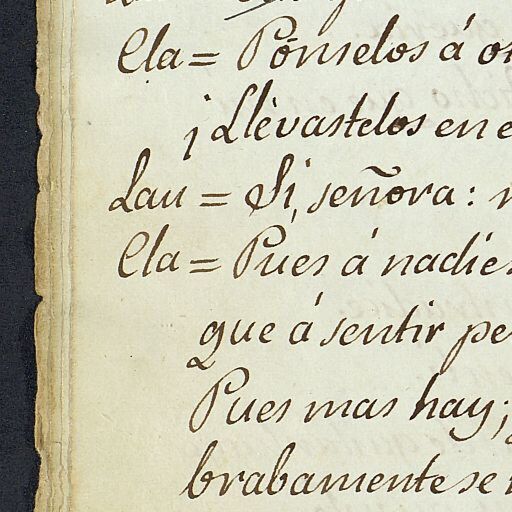 Cla = Pónselos á
¡Llévastelos en
Lau = Si, señora:
Cla = Pues á nadie
que á sentir
Pues mas hay;
brabamente se